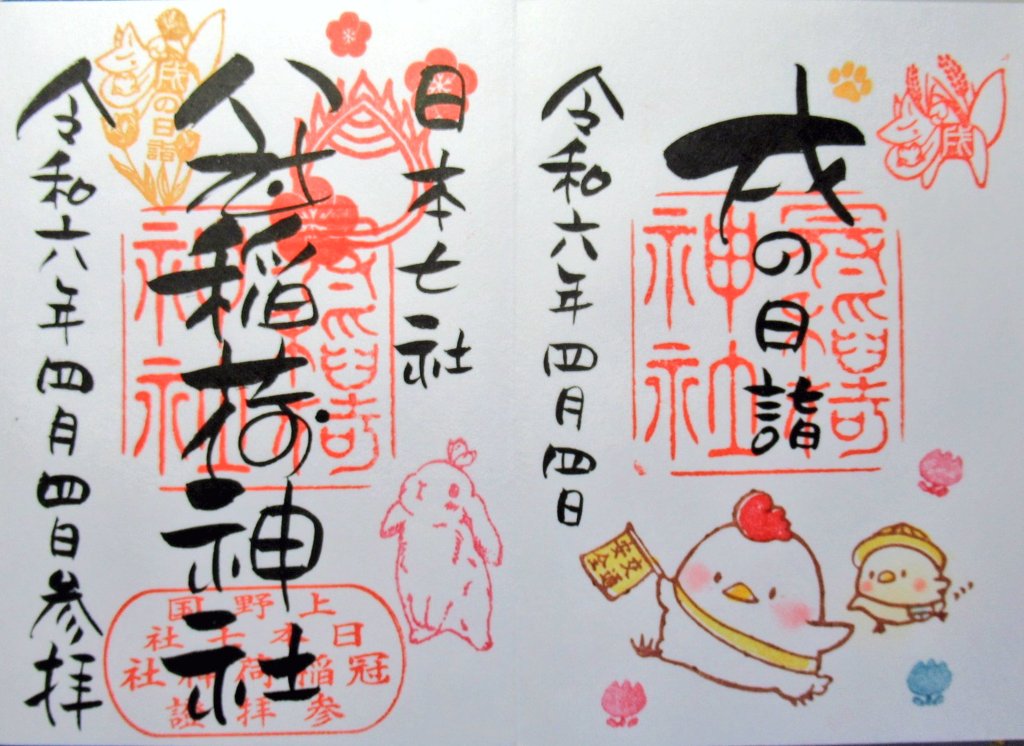 戌の日詣
令和六年四月四日
戌
交通
安全
日本七社
冠稲荷神社
令和六年四月四日参拝
戌の日詣
上野国
日本七社
冠稲荷神社
参拝證